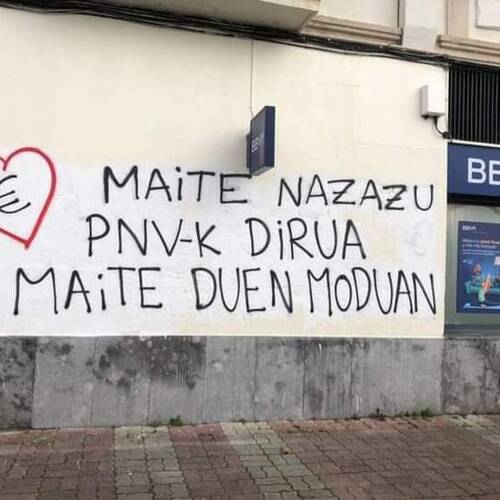 €
MAiTE NAZAZU
PNV-K DiRUA
MAiTE DUEN MoDUAN
BBVA
BB